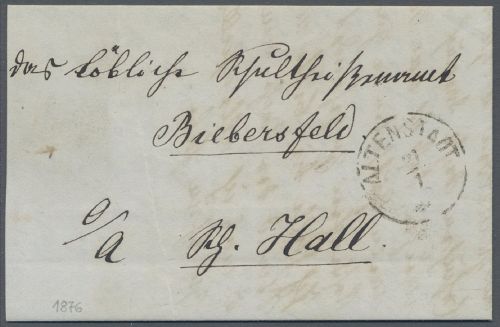 das löbliche Schultheißenamt
Biebersfeld.
ALTENSTADT
21
O/A Sch. Hall.
1876